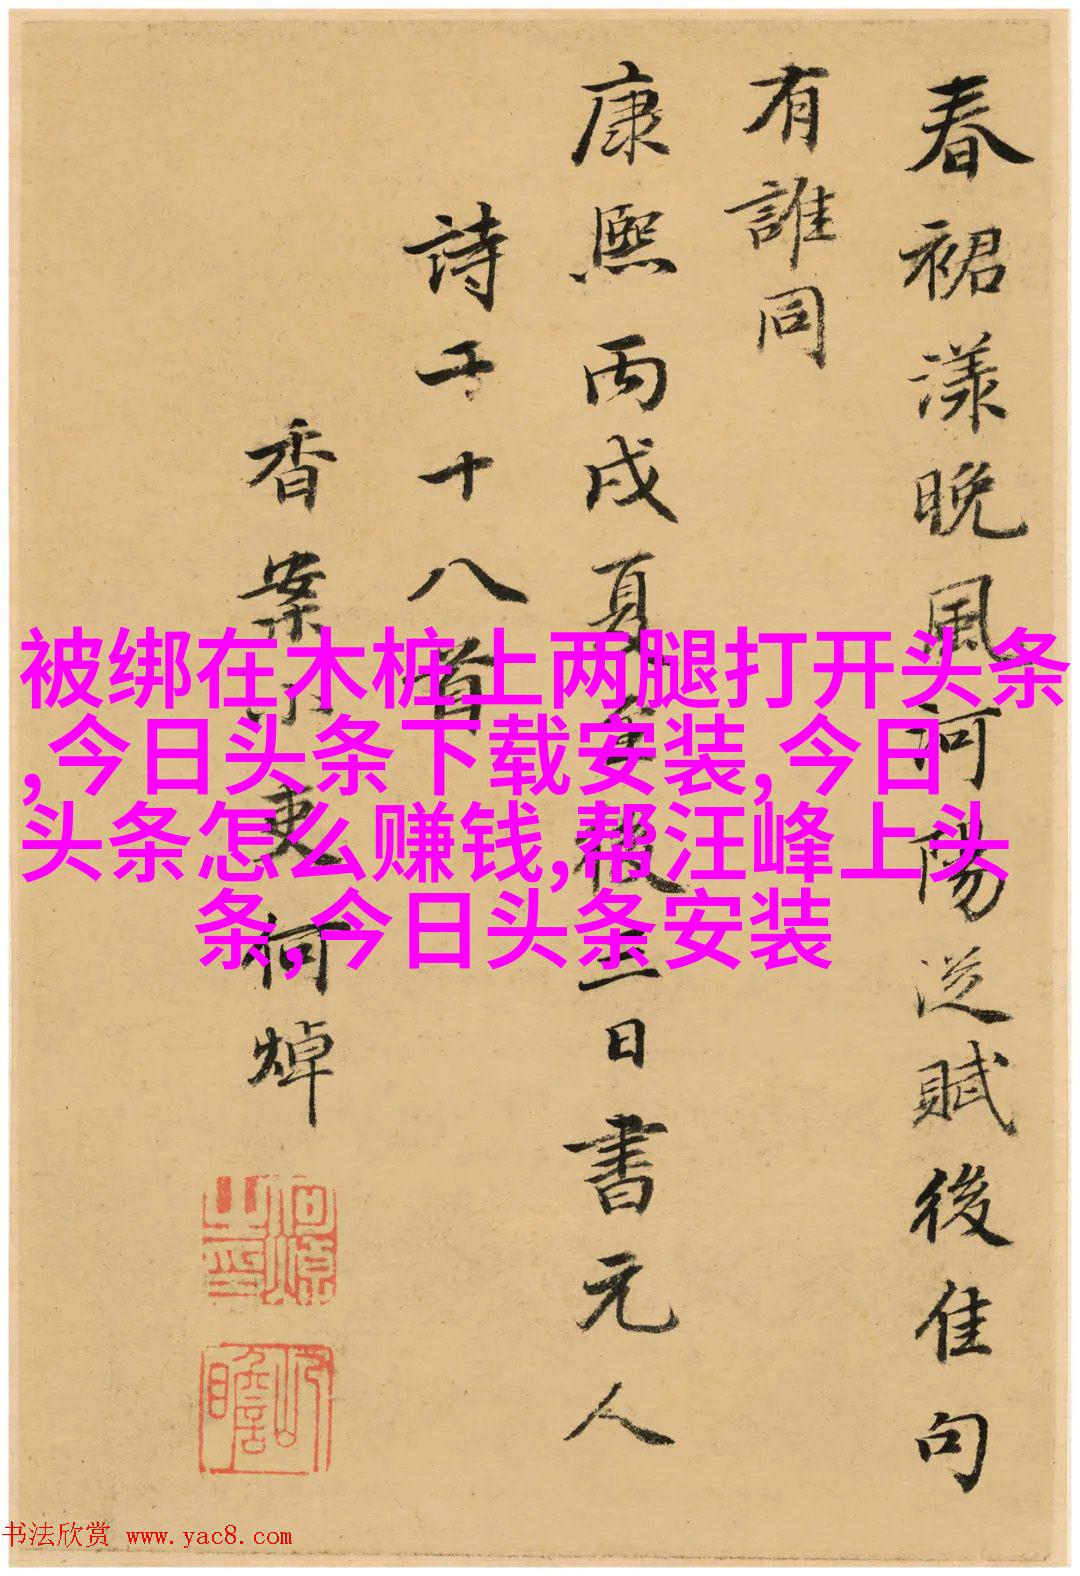 春裙漾晚風河陽從賦後佳句
有誰同
康熙丙戌夏至後三日書元人
詩二十八首
香案小吏何焯
被绑在木桩上两腿打开头条
,今日头条下载安装,今日
头条怎么赚钱,帮汪峰上头
条,今日头条安装
书法欣赏 www.yac8.com